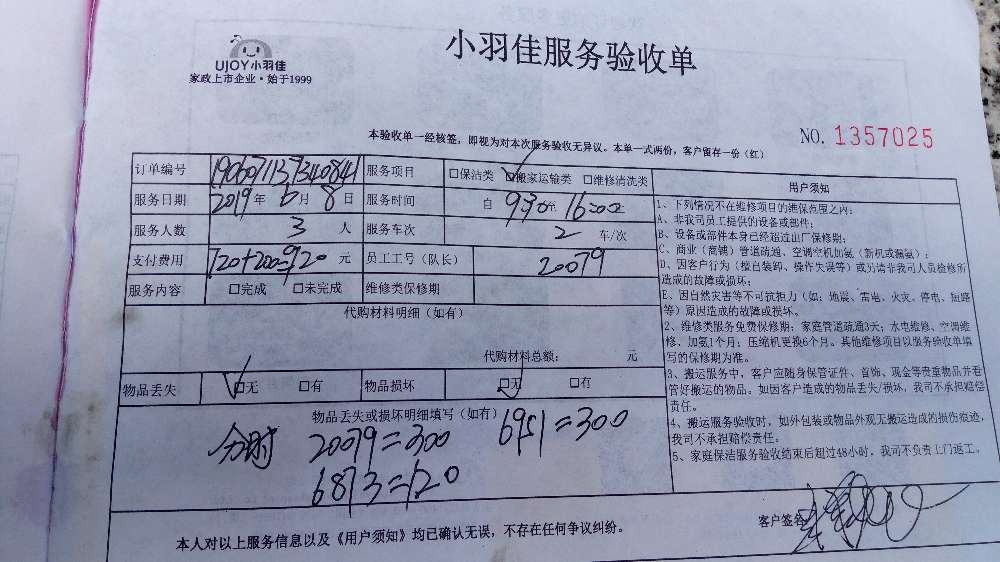 UJOY小羽佳
家政上市企业·始于1999
小羽佳服务验收单
NO. 1357025
本验收单一经核签，即视为对本次服务验收无异议。本单一式两份，客户留存一份（红）
订单编号 服务项目 □保洁类 □搬家运输类 □维修清洗类
服务日期 2019年 6月 8日 服务时间 自 9:30至 16:00
服务人数 3 人 服务车次 2 车/次
支付费用 720+200=920 元 员工工号（队长） 20079
服务内容 □完成 □未完成 维修类保修期
代购材料明细（如有）
代购材料总额： 元
物品丢失 □无 □有 物品损坏 □无 □有
物品丢失或损坏明细填写（如有）
分时 20079=300 6951=300
6873=120
用户须知
1、下列情况不在维修项目的维保范围之内：
A、非我司员工提供的设备或部件；
B、设备或部件本身已经超过出厂保修期；
C、商业（商铺）管道疏通、空调空机加氨（新机或漏氨）；
D、因客户行为（擅自装卸、操作失误等）或另请非我司人员检修所
造成的故障或损坏；
E、因自然灾害等不可抗拒力（如：地震、雷电、火灾、停电、短路
等）原因造成的故障或损坏。
2、维修类服务免费保修期：家庭管道疏通3天；水电维修、空调维
修、加氨1个月；压缩机更换6个月。其他维修项目以服务验收单填
写的保修期为准。
3、搬运服务中，客户应随身保管证件、首饰、现金等贵重物品并看
管好搬运的物品。如因客户造成的物品丢失/损坏，我司不承担赔偿
责任。
4、搬运服务验收时，如外包装或物品外观无搬运造成的损伤痕迹，
我司不承担赔偿责任。
5、家庭保洁服务验收结束后超过48小时，我司不负责上门返工。
本人对以上服务信息以及《用户须知》均已确认无误，不存在任何争议纠纷。
客户签名